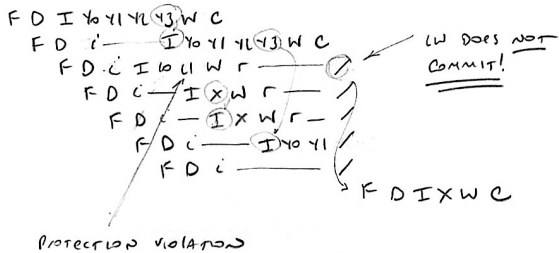 F D I Y0 Y1 Y2 Y3 W C
F D i — I Y0 Y1 Y2 Y3 W C
F D i I L0 L1 W r — /
F D i — I X W r — /
F D i — I X W r — /
F D i — I Y0 Y1 /
F D i — /
F D I X W C
LW DOES NOT
COMMIT!
PROTECTION VIOLATION